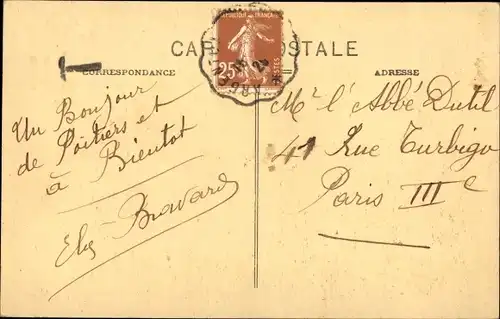 CARTE POSTALE
REPUBLIQUE FRANÇAISE
25
POSTES
CORRESPONDANCE
ADRESSE
Un Bonjour
de Poitiers et
à Bientot
Mr l'Abbé Dutil
41 Rue Turbigo
Paris IIIe